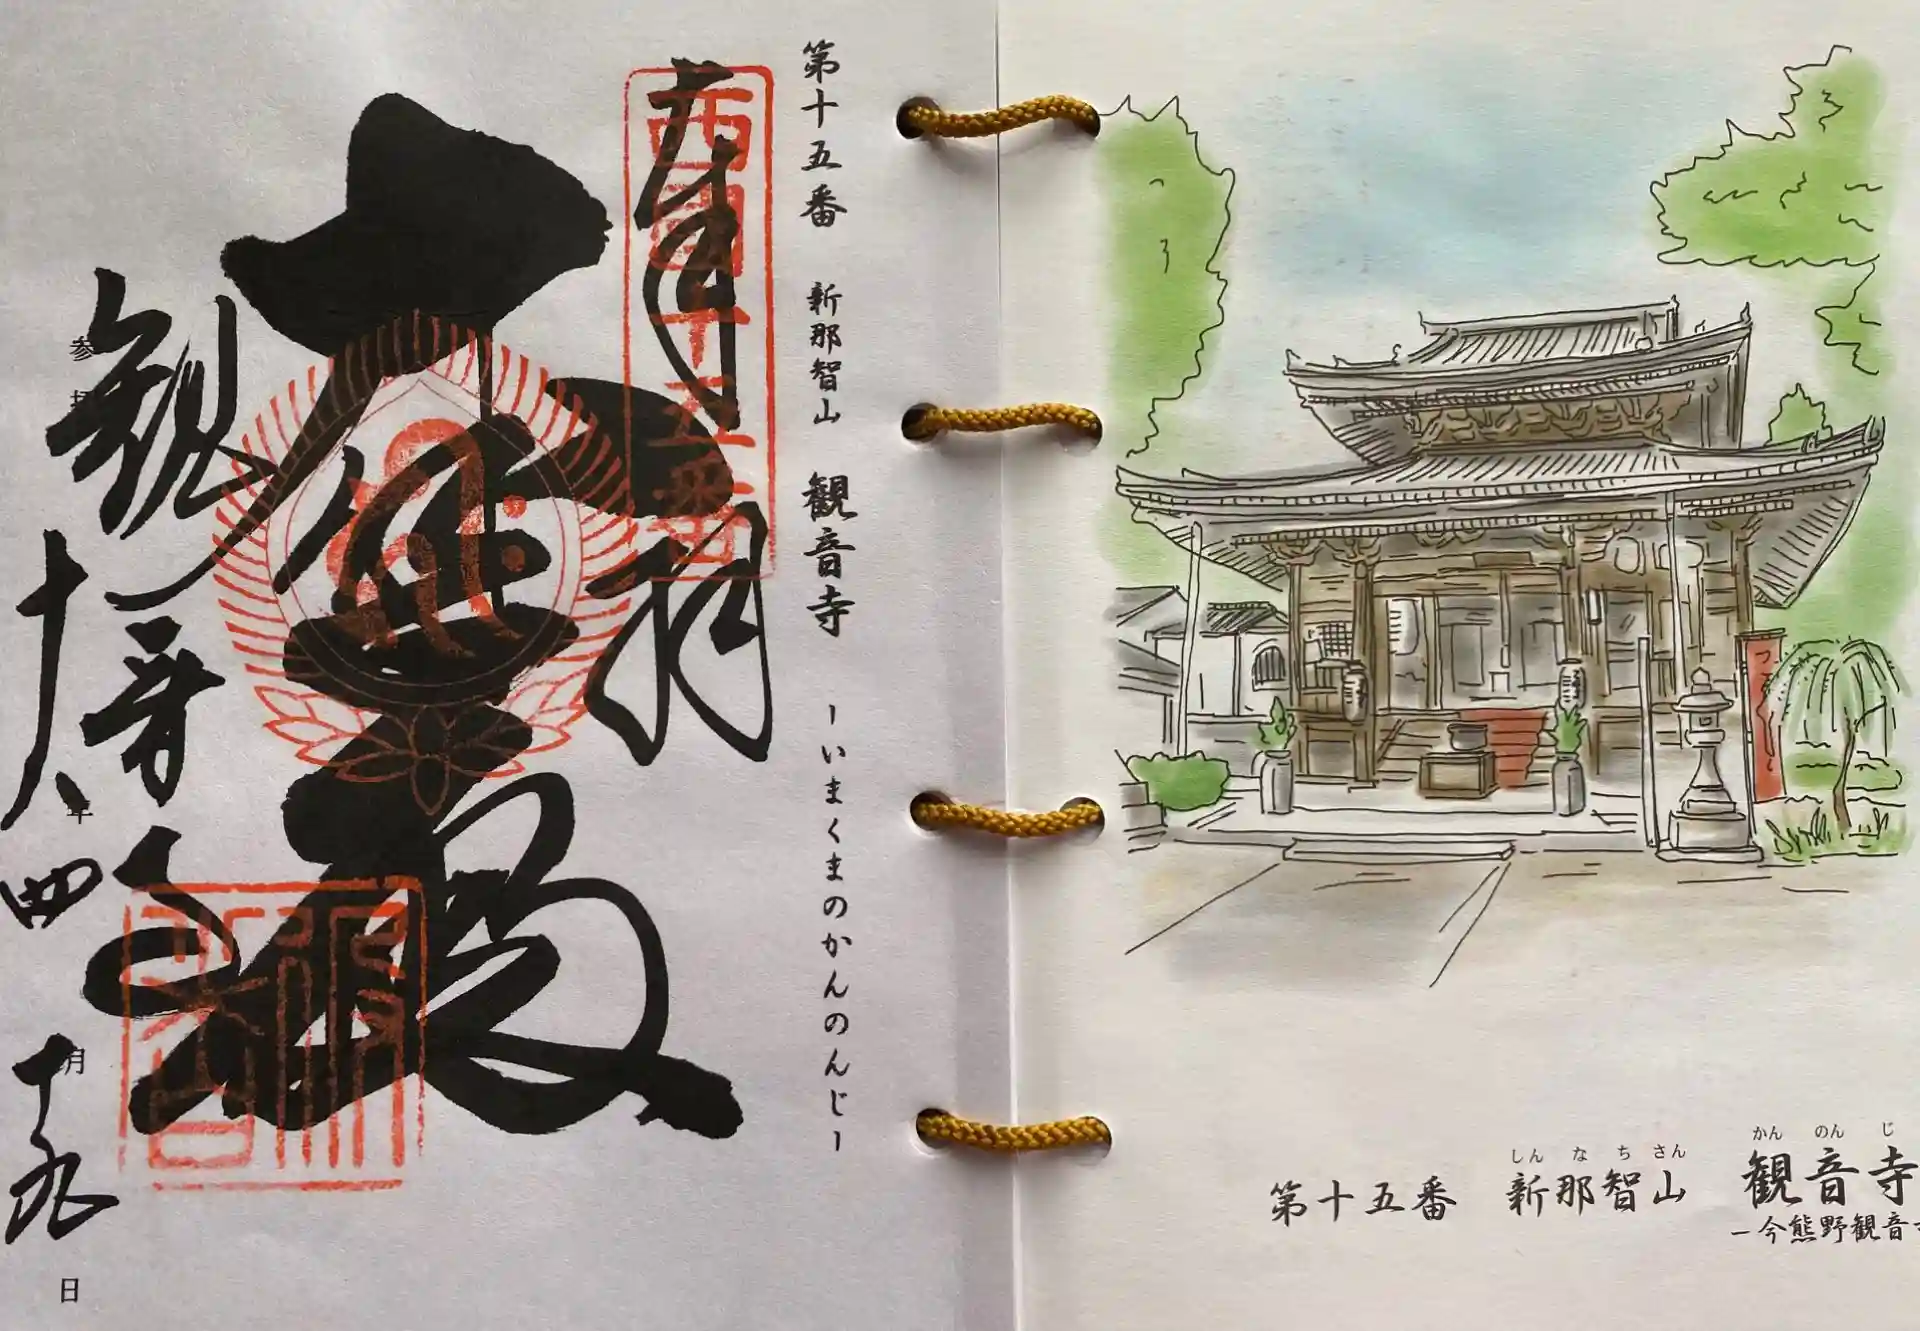 第十五番 新那智山 観音寺 ーいまくまのかんのんじー
奉拝
西国十五番
大悲殿
観音寺
参拝 十八年四月十九日
しんなちさん かんのんじ
第十五番 新那智山 観音寺
ー今熊野観音